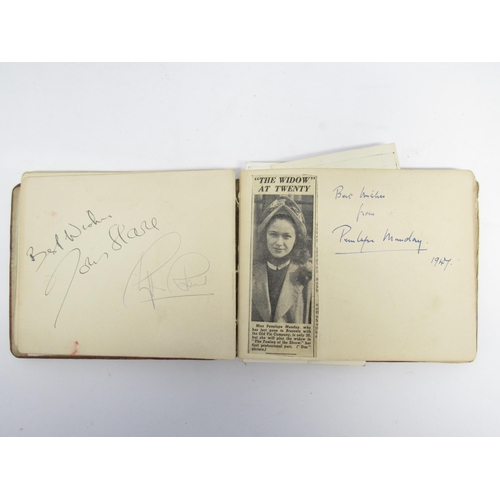 Best Wishes
"THE WIDOW"
AT TWENTY
Miss Penelope Munday, who
has just gone to Brussels with
the Old Vic Company, is only 20,
but she will play the widow in
"The Taming of the Shrew," her
first professional part.
Best Wishes
from
Penelope Munday.
1947.